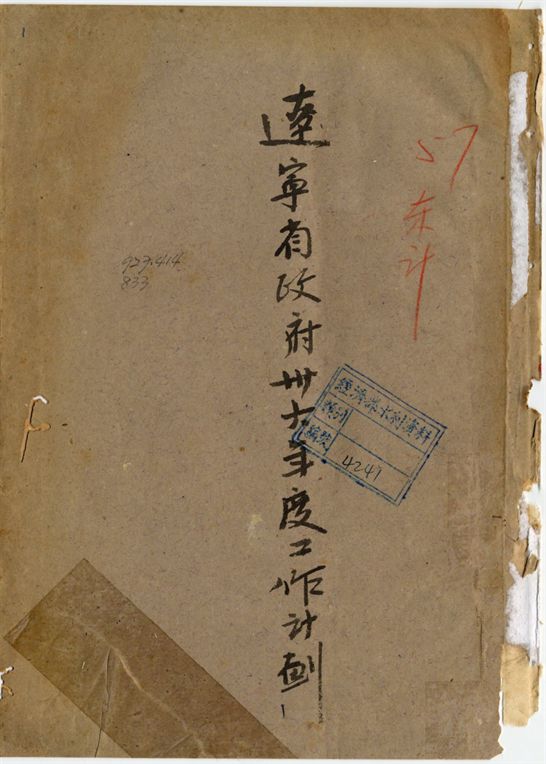 1
57东计
遼寧省政府卅六年度工作計劃
929.414
833
經濟部水利資料
類別
編號
4241